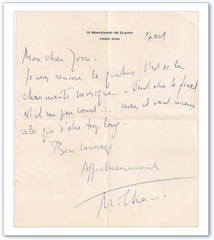 10 BOULEVARD DE CLICHY
PARIS XVIIIE
Mon cher Yvon.
Je vous renvoie le quatuor. C'est de la
charmante musique. Peut-être le final
est-il un peu court... mais il vaut mieux
cela que d'être trop long.
Bon courage.
Affectueusement
Milhaud